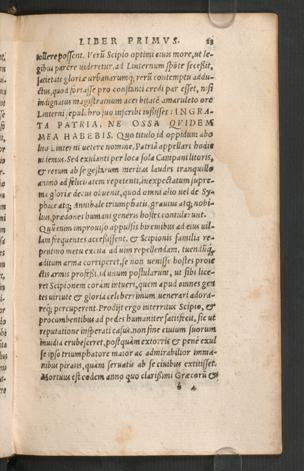 LIBER PRIMVS. 28
tollere possent. Verū Scipio optimi ciuis more, ut le-
gibus parere uideretur, ad Linternum spōte secessit,
satietate gloriæ urbanarumq; rerū contemptu addu-
ctus, quod fortasse pro constanti credi par esset, nisi
indignatus magistratuum acerbitatē
Linterni sepulchro suo inscribi iussisset: INGRA
TA PATRIA, NE OSSA QVIDEM
MEA HABEBIS. Quo titulo id oppidum abo
lito Linterni uetere nomine, Patriā appellari hodie
uidemus. Sed exulanti per loca sola Campani litoris,
& rerum ab se gestarum meritas laudes tranquillo
animo ad felicitatem repetenti, inexpectatum supre-
mæ gloriæ decus obuenit, quod omni alio uel de Sy-
phace atq; Annibale triumpho
bilius, prædones humani generis hostes contulerunt.
Quū enim improuiso appulsis biremibus ad eius uil-
lam frequentes accessissent, & Scipionis familia re-
pentino metu excita ad uim repellendam,
ditum arma corriperet, se non uenisse hostes proie-
ctis armis professi, id unum postularunt, ut sibi lice-
ret Scipionem coram intueri, quem apud omnes gen
tes uirtute & gloria celeberrimum uenerari adora-
req; percuperent. Prodijt ergo interritus Scipio, &
procumbentibus ad pedes humaniter satisfecit, sic ut
reputatione insperati casus, non sine ciuium suorum
inuidia erubesceret, postquàm extorris & penè exul
se ipso triumphatore maior ac admirabilior imma-
nibus piratis, quàm seruatis ab se ciuibus extitisset.
Mortuus est eodem anno quo clarissimi Græcorū &